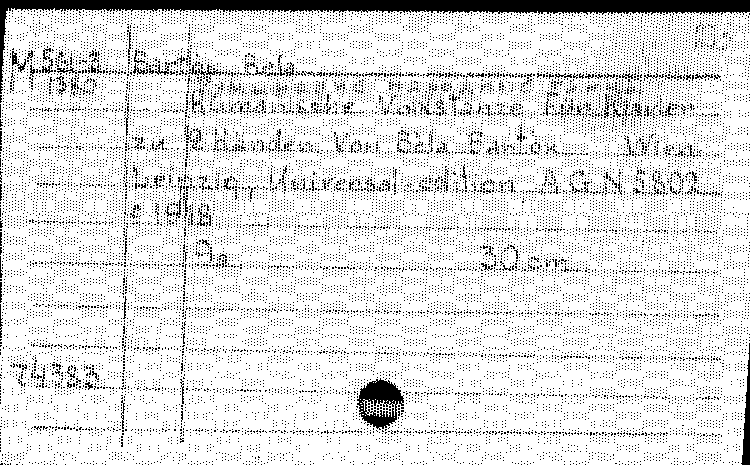 M 584-3 Bartók Bela
M 1380
Rumänische Volkstänze für Klavier
zu 2 Händen von Béla Bartók Wien
Leipzig, Universal-edition, A.G. N 5802
c 1918
30 cm
74383